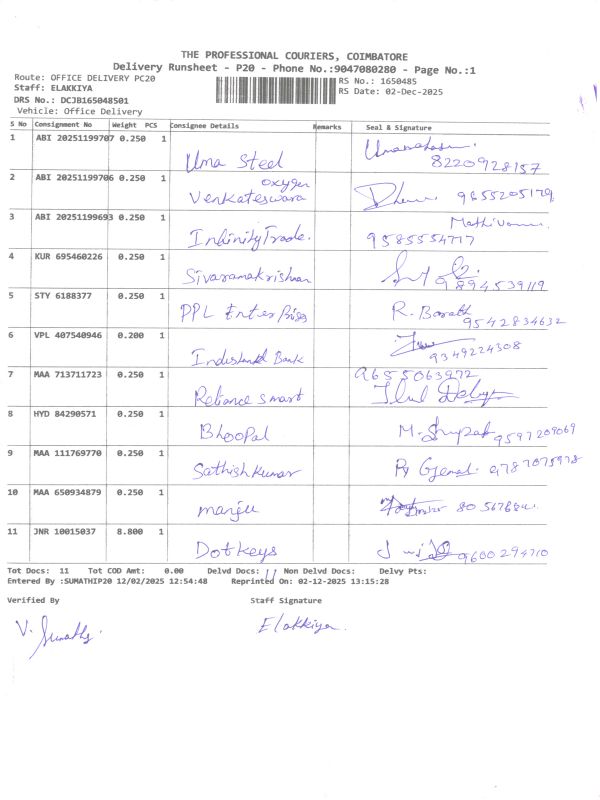 THE PROFESSIONAL COURIERS, COIMBATORE
Delivery Runsheet - P20 - Phone No.:9047080280 - Page No.:1
Route: OFFICE DELIVERY PC20
RS No.: 1650485
Staff: ELAKKIYA
RS Date: 02-Dec-2025
DRS No.: DCJB165048501
Vehicle: Office Delivery
S No Consignment No Weight PCS Consignee Details Remarks Seal & Signature
1 ABI 20251199707 0.250 1 Uma Steel
8220928157
2 ABI 20251199706 0.250 1 Venkateswara oxygen 9655205179
3 ABI 20251199693 0.250 1 Infinity Trade. Mathivanan
9585554717
4 KUR 695460226 0.250 1 Sivaramakrishnan
9894539119
5 STY 6188377 0.250 1 PPL Enterprises R. Barath
9542834632
6 VPL 407540946 0.200 1 Bank
9349224308
7 MAA 713711723 0.250 1 Reliance smart 9655063972
8 HYD 84290571 0.250 1 Bhoopal 9597209069
9 MAA 111769770 0.250 1 Sathish Kumar 9787075978
10 MAA 650934879 0.250 1 manju
11 JNR 10015037 8.800 1 Dotkeys 9600294710
Tot Docs: 11 Tot COD Amt: 0.00 Delvd Docs: 11 Non Delvd Docs: Delvy Pts:
Entered By :SUMATHIP20 12/02/2025 12:54:48 Reprinted On: 02-12-2025 13:15:28
Verified By Staff Signature
V. Sumathi Elakkiya.